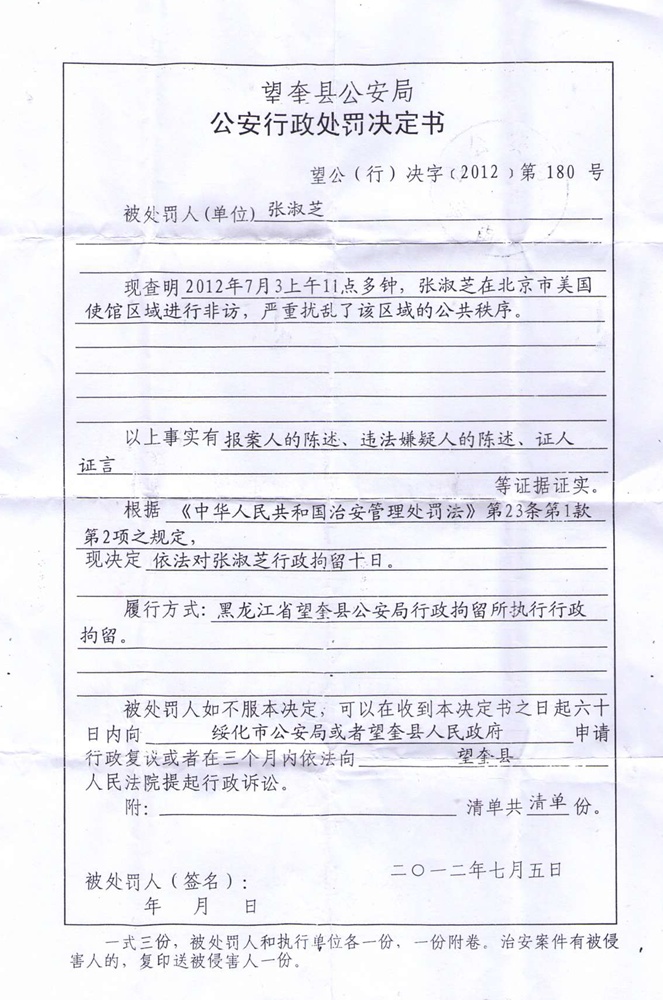 望奎县公安局
公安行政处罚决定书
望公（行）决字﹝2012﹞第 180 号
被处罚人(单位) 张淑芝
现查明2012年7月3上午11点多钟，张淑芝在北京市美国
使馆区域进行非访，严重扰乱了该区域的公共秩序。
以上事实有 报案人的陈述、违法嫌疑人的陈述、证人
证言
等证据证实。
根据 《中华人民共和国治安管理处罚法》第23条第1款
第2项之规定，
现决定 依法对张淑芝行政拘留十日。
履行方式：黑龙江省望奎县公安局行政拘留所执行行政
拘留。
被处罚人如不服本决定，可以在收到本决定书之日起六十
日内向 绥化市公安局或者望奎县人民政府 申请
行政复议或者在三个月内依法向 望奎县
人民法院提起行政诉讼。
附： 清单共 清单 份。
二〇一二年七月五日
被处罚人（签名）：
年 月 日
一式三份，被处罚人和执行单位各一份，一份附卷。治安案件有被侵
害人的，复印送被侵害人一份。